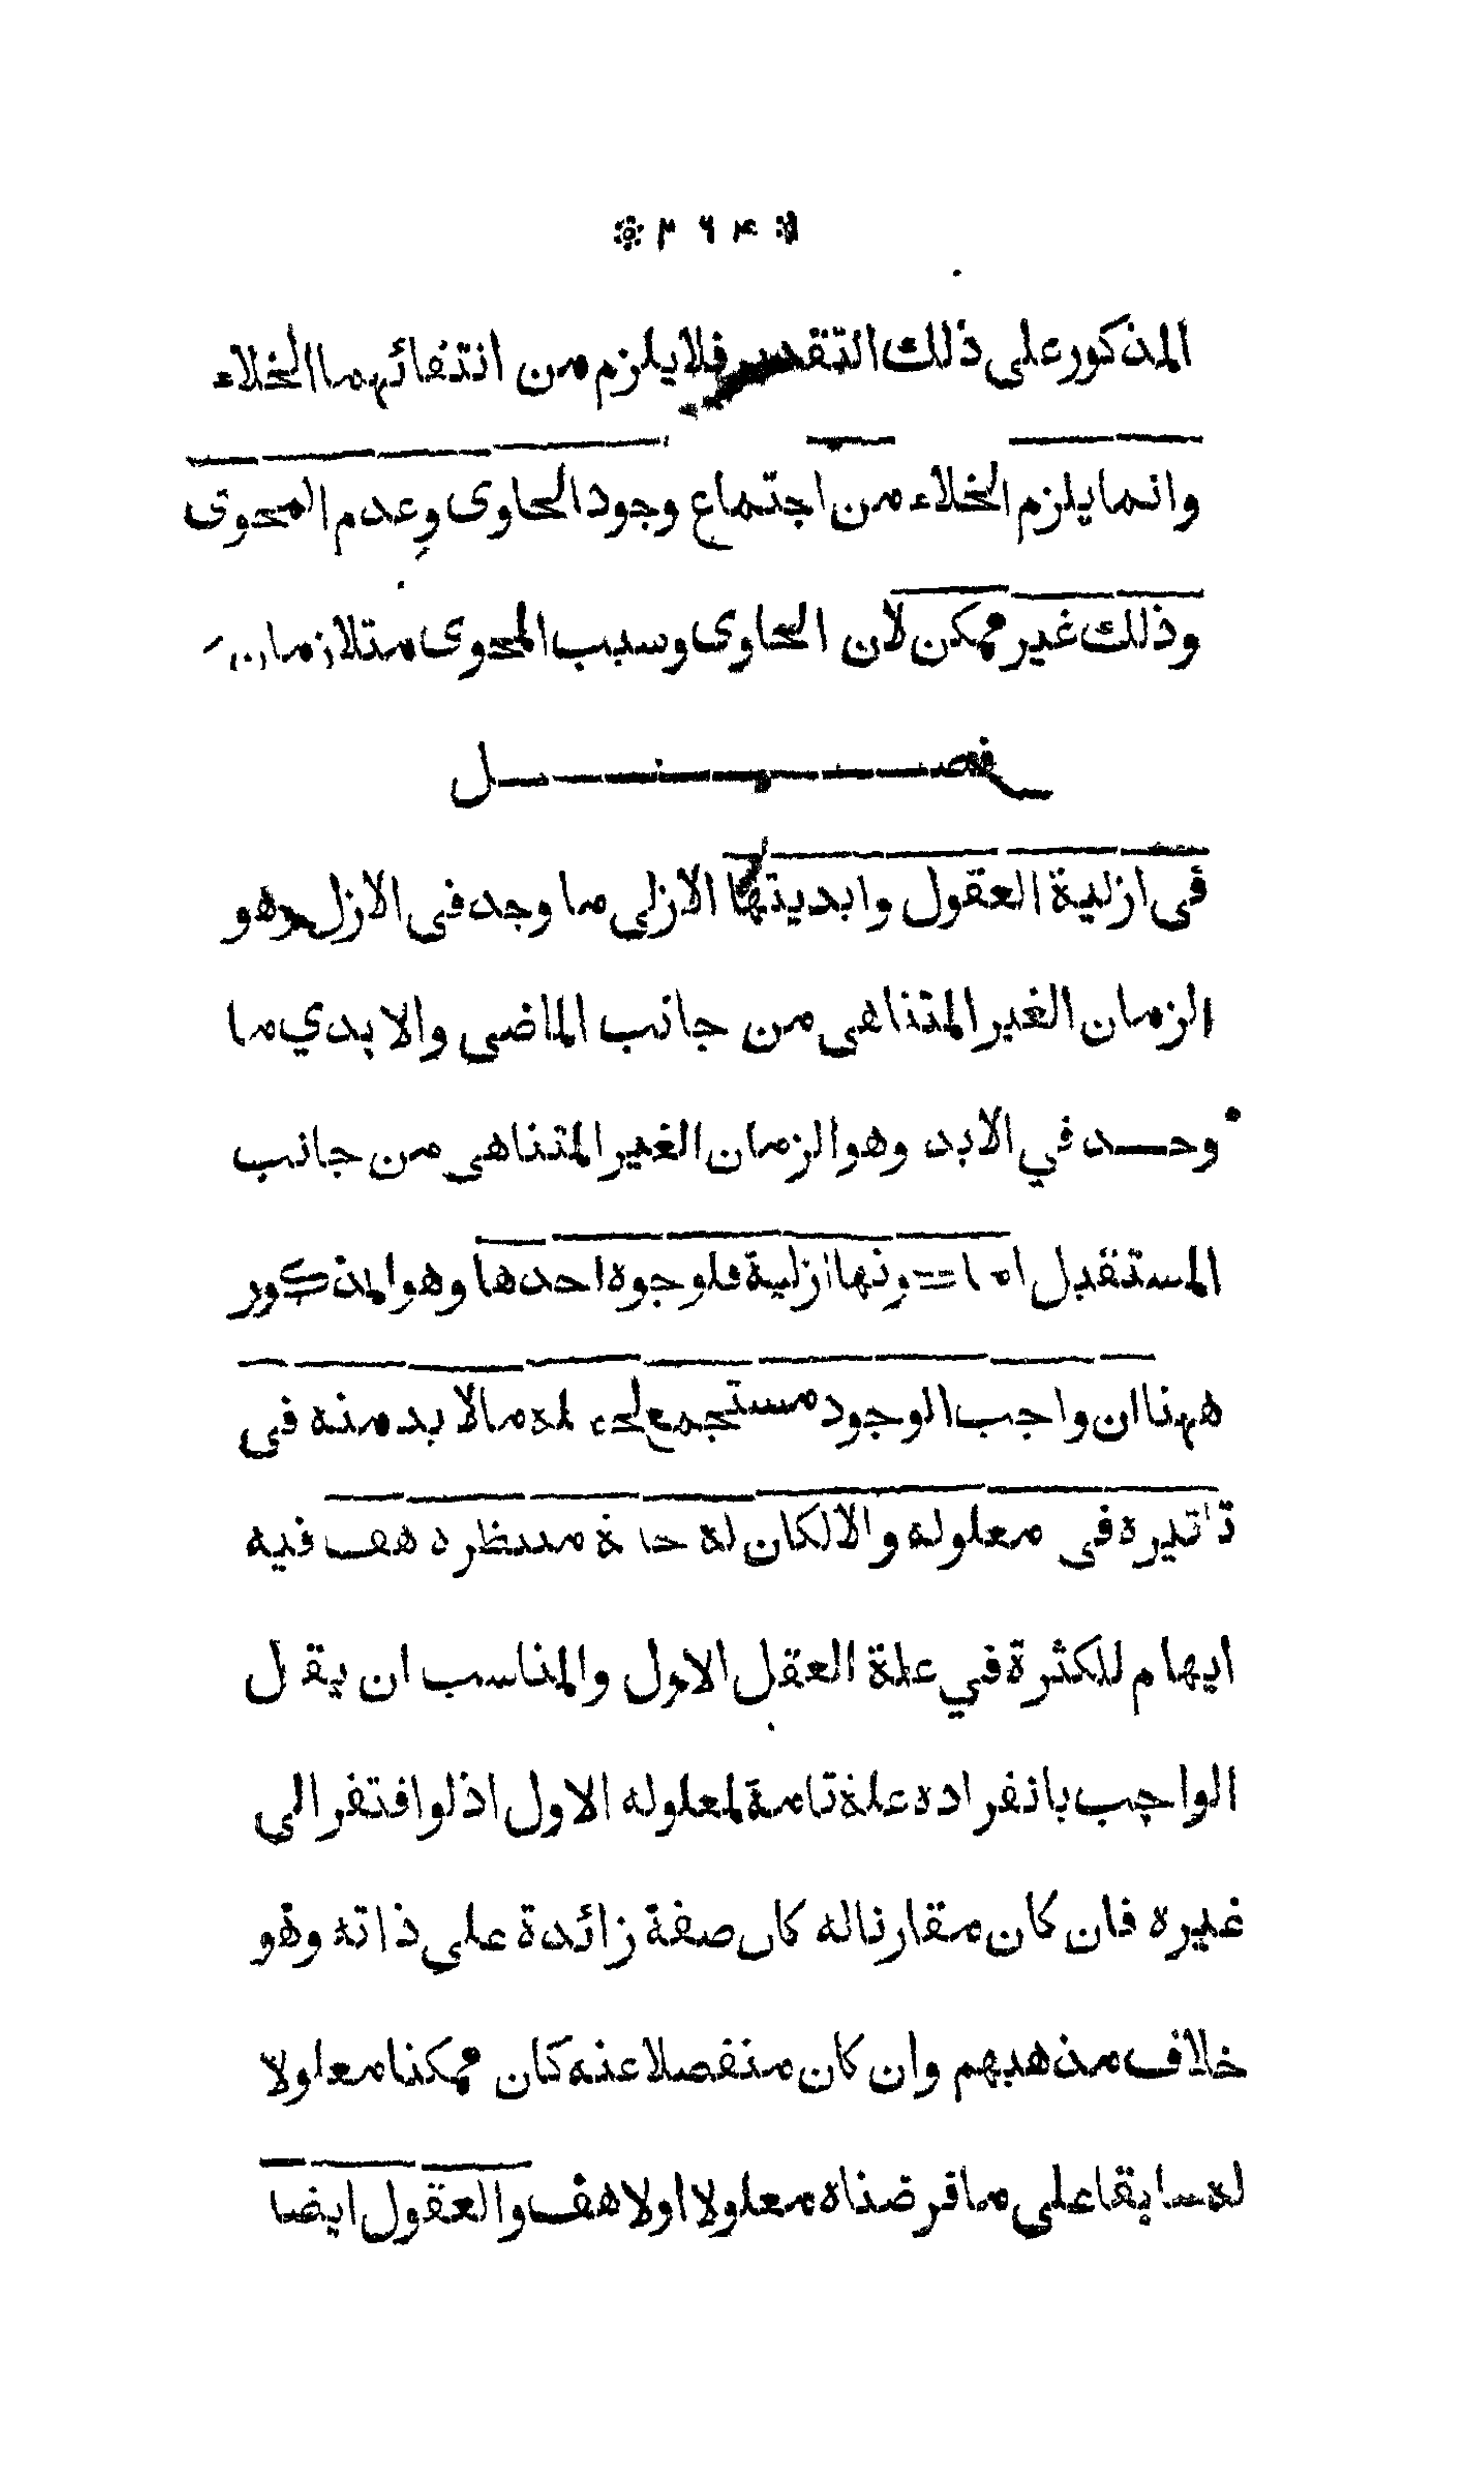 * ٢٦٤ *
المذكور على ذلك التقدير فلا يلزم من انتفائهما الخلاء
وانما يلزم الخلاء من اجتماع وجود الحاوى وعدم المحوى
وذلك غير ممكن لان الحاوى وسبب المحوى متلازمان
فصل
فى ازلية العقول وابديتها الازلى ما وجد فى الازل وهو
الزمان الغير المتناهى من جانب الماضى والابدي ما
وجد في الابد وهو الزمان الغير المتناهى من جانب
المستقبل اما كونها ازلية فلوجوه احدها وهو المذكور
ههنا ان واجب الوجود مستجمع لجملة مالا بد منه فى
تاثيره فى معلوله والا لكان له حالة منتظرة هف فيه
ايهام للكثرة في علة العقل الاول والمناسب ان يقال
الواجب بانفراده علة تامة لمعلوله الاول اذ لو افتقر الى
غيره فان كان مقارنا له كان صفة زائدة على ذاته وهو
خلاف مذهبهم وان كان منفصلا عنه كان ممكنا معلولا
له سابقا على ما فرضناه معلولا اولا هف والعقول ايضا